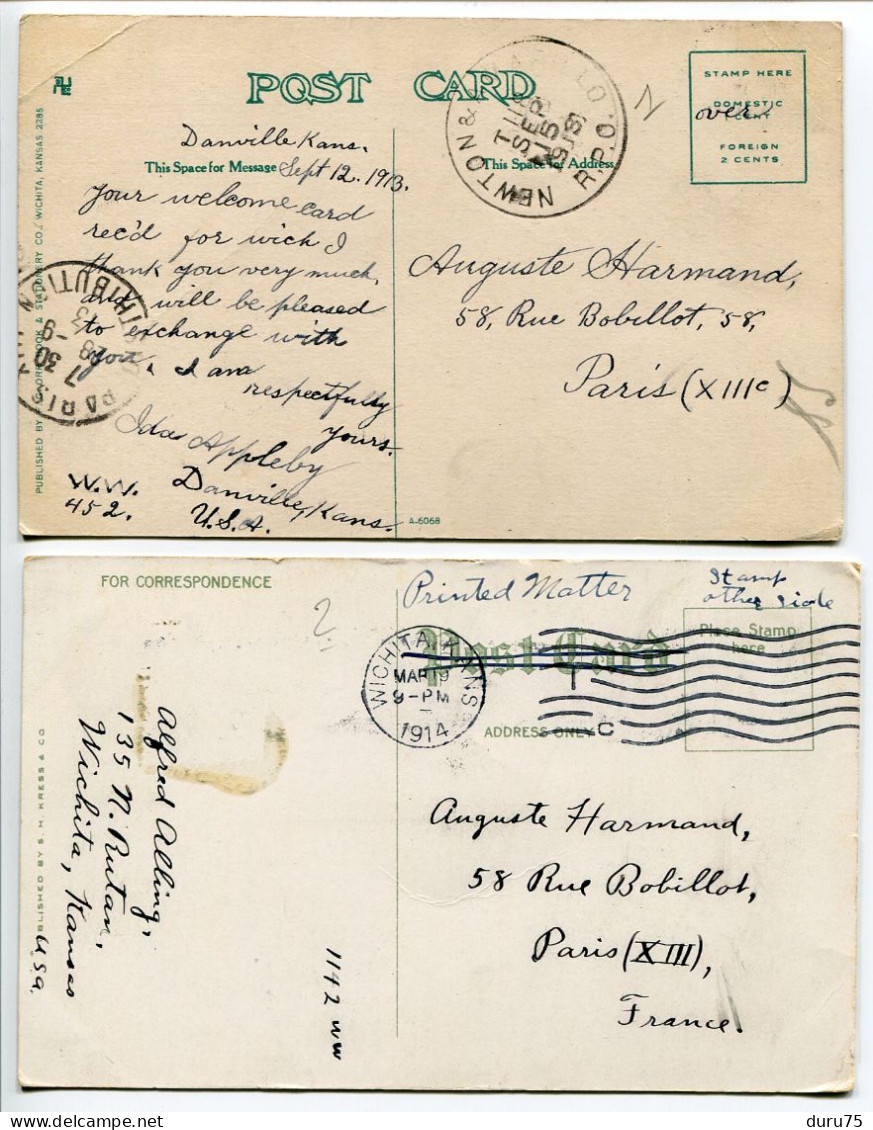 POST CARD
STAMP HERE
DOMESTIC
over
FOREIGN
2 CENTS
Danville Kans.
This Space for Message
Sept 12. 1913.
This Space for Address
NEWTON &
R.P.O.
SEP
15
1913
N
Your welcome card
rec'd for wich I
thank you very much,
and will be pleased
to exchange with
you. I am
respectfully
yours.
Ida Appleby
Danville, Kans.
U.S.A.
W.W.
452.
Auguste Harmand,
58, Rue Bobillot, 58,
Paris (XIIIe)
PARIS
DISTRIBUTION
7 30
28 -9
13
PUBLISHED BY
BOOK & STATIONERY CO., WICHITA, KANSAS 2285
A-6068
FOR CORRESPONDENCE
Printed Matter
Stamp
other side
Post Card
Place Stamp
here
WICHITA, KANS.
MAR 19
9-PM
1914
ADDRESS ONLY
C
2.
Alfred Alling,
135 N. Rutan,
Wichita, Kansas
USA.
1142 WW
Auguste Harmand,
58 Rue Bobillot,
Paris (XIII),
France.
PUBLISHED BY S. H. KRESS & CO
duru75